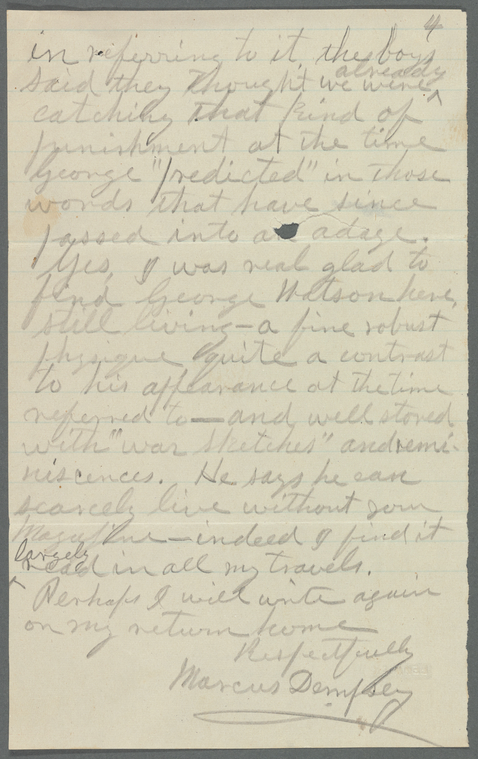 4
in referring to it, the boys
said they thought we were already
catching that kind of
punishment at the time
George "predicted" in those
words that have since
passed into an adage.
Yes, I was real glad to
find George Watson here,
still living – a fine robust
physique quite a contrast
to his appearance at the time
referred to – and, well stored
with "war sketches" and remi-
niscences. He says he can
scarcely live without your
Magazine – indeed I find it
largely read in all my travels.
Perhaps I will write again
on my return home
Respectfully
Marcus Dempsey